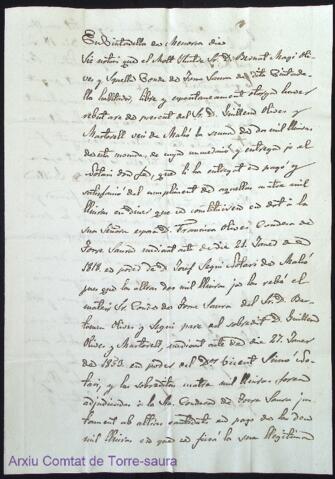 En Ciutadella de Menorca dia
Sia notori que el Molt Iltre Sr. D. Bernat Magi Oli-
ves y Squella Conde de Torre Saura de dita Ciutade-
lla habitant, libre y espontaneament otorga haver
rebut ara de present del Sr. D. Guillem Olives y
Martorell vei de Mahó la suma de dos mil lliuras
de esta moneda, de cuya numeració y entrega jo el
Notari don fee, que li ha entregat en pago y
satisfacció del cumpliment de aquellas mil
lliuras en diner que se constituiren en dot á la
sua Señora esposa Dª Francisca Olives Condesa de
Torre Saura mediant acte de dia 21 Janer de
1818 en poder de D. Josef Segui Notari de Mahó
pues que la altras dos mil lliuras ja las rebé el
mateix Sr. Conde de Torre Saura del Sr. D. Bar-
tomeu Olives y Segui pare del sobredit D. Guillem
Olives y Martorell, mediant acte de dia 27 Janer
de 1823 en poder del Dor Vicent Simó No-
tari, y las sobredas mil lliuras foren
adjudicadas á la Sa. Condesa de Torre Saura jun-
tament ab altres cantidats en pago de las dos
mil lliuras en que se fixá la sua llegitima
Arxiu Comtat de Torre-saura